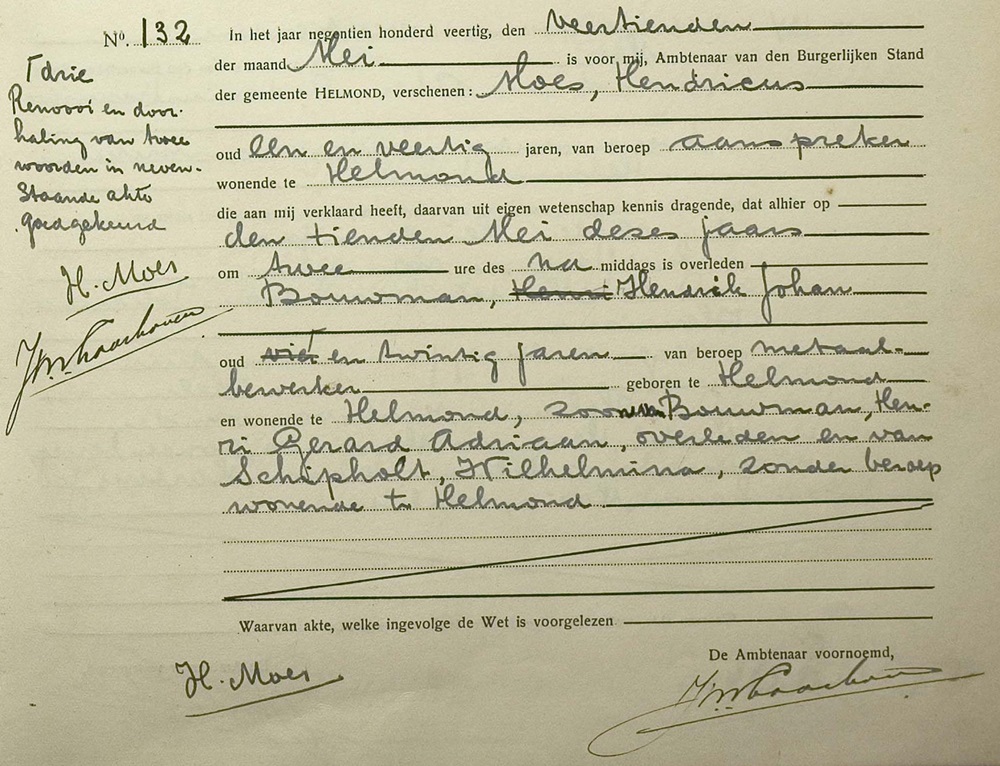 Nº. 132
In het jaar negentien honderd veertig, den veertienden
der maand Mei is voor mij, Ambtenaar van den Burgerlijken Stand
der gemeente HELMOND, verschenen: Moes, Hendricus
oud een en veertig jaren, van beroep aanspreker
wonende te Helmond
die aan mij verklaard heeft, daarvan uit eigen wetenschap kennis dragende, dat alhier op
den tienden Mei deses jaars
om twee ure des na middags is overleden
Bouwman, Henri Hendrik Johan
oud vier en twintig jaren van beroep metaal-
bewerker geboren te Helmond
en wonende te Helmond, zoon van Bouwman, Hen-
ri Gerard Adriaan, overleden en van
Schipholt, Wilhelmina, zonder beroep
wonende te Helmond.
Waarvan akte, welke ingevolge de Wet is voorgelezen
De Ambtenaar voornoemd,
H. Moes
Γ drie
Renvooi en door-
haling van twee
woorden in neven-
staande akte
goedgekeurd
H. Moes